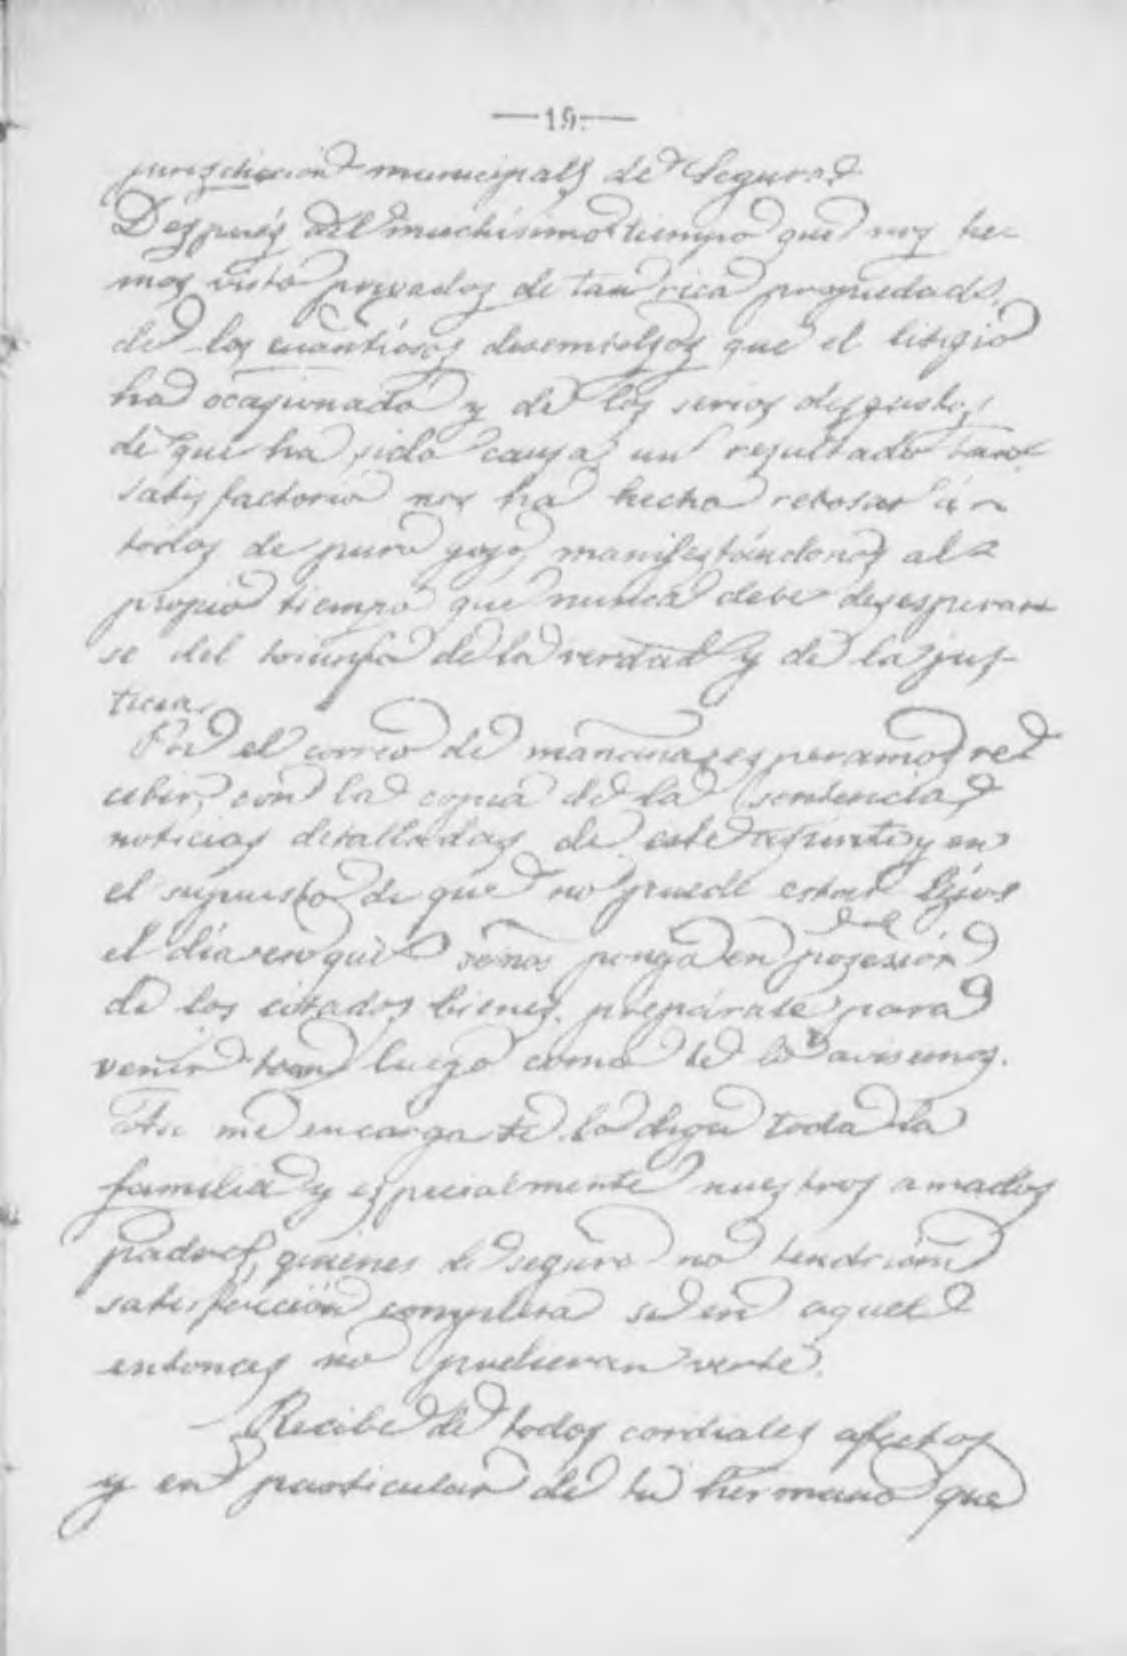 —19.—
jurisdiccion municipal de Segura.
Después del muchísimo tiempo que nos he-
mos visto privados de tan rica propiedad,
de los cuantiosos desembolsos que el litigio
ha ocasionado y de los serios disgustos
de que ha sido causa, un resultado tan
satisfactorio nos ha hecho rebosar á
todos de puro gozo, manifestándonos al
propio tiempo que nunca debe desesperar
se del triunfo de la verdad y de la jus-
ticia.
Por el correo de mañana esperamos re
cibir, con la copia de la sentencia,
noticias detalladas de este asunto y en
el supuesto de que no puede estar lejos
el dia en que se nos ponga en posesión
de los citados bienes, prepárate para
venir tan luego como te lo avisemos.
Así me encarga te lo diga toda la
familia y especialmente nuestros amados
padres, quienes de seguro no tendrían
satisfacción completa si en aquel
entonces no pudieran verte.
Recibe de todos cordiales afectos
y en particular de tu hermano que